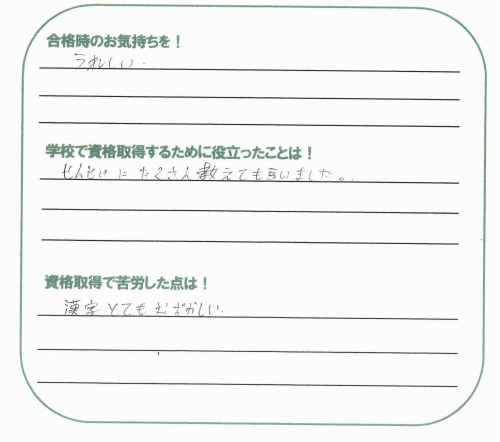 合格時のお気持ちを！
うれしい.
学校で資格取得するために役立ったことは！
せんせいに たくさん教えてもらいました。.
資格取得で苦労した点は！
漢字とてもむずかしい.